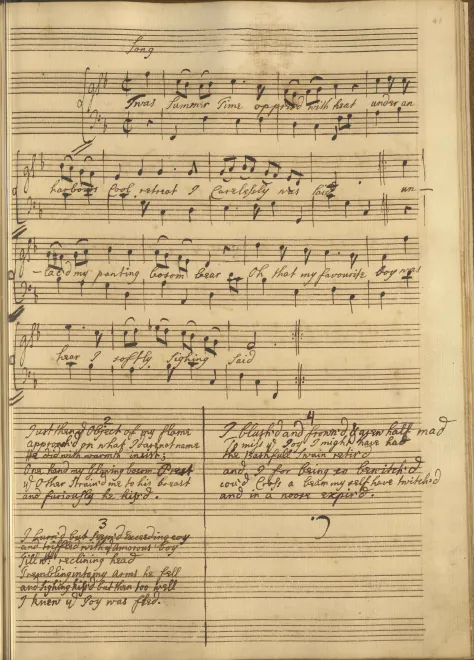 Song
Twas Summer Time oppress'd with heat under an
harbours Cool retreat I Carelessly was laid un-
-lac'd my panting bosom bear Oh that my favourite boy was
hear I softly sighing said
2
Just then ye Object of my flame
approach'd on what I dare not name
He did with warmth insist;
One hand my Glowing bosom Prest
ye Other Strain'd me to his breast
and furiously he kiss'd.
3
I burn'd but seem'd Exceeding coy
and trifled with ye Amorous boy
Till reclining head
Trembling into my Arms he fell
and sighing kiss'd but then too well
I knew ye Joy was fled.
4
I blush'd and frown'd & even half mad
To miss ye Joy I might have had
the bashfull Swain retir'd
and I for being so bewitch'd
cou'd Cross a beam my self have twitch'd
and in a noose expir'd.